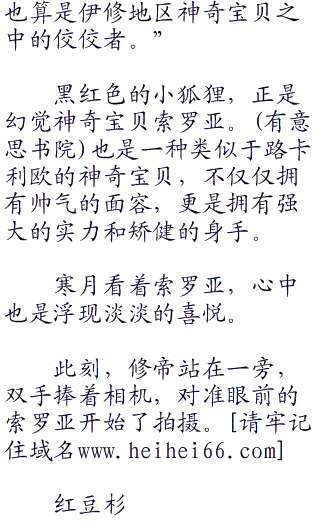 也算是伊修地区神奇宝贝之
中的佼佼者。”
黑红色的小狐狸，正是
幻觉神奇宝贝索罗亚。(有意
思书院)也是一种类似于路卡
利欧的神奇宝贝，不仅仅拥
有帅气的面容，更是拥有强
大的实力和矫健的身手。
寒月看着索罗亚，心中
也是浮现淡淡的喜悦。
此刻，修帝站在一旁，
双手捧着相机，对准眼前的
索罗亚开始了拍摄。[请牢记
住域名www.heihei66.com]
红豆杉